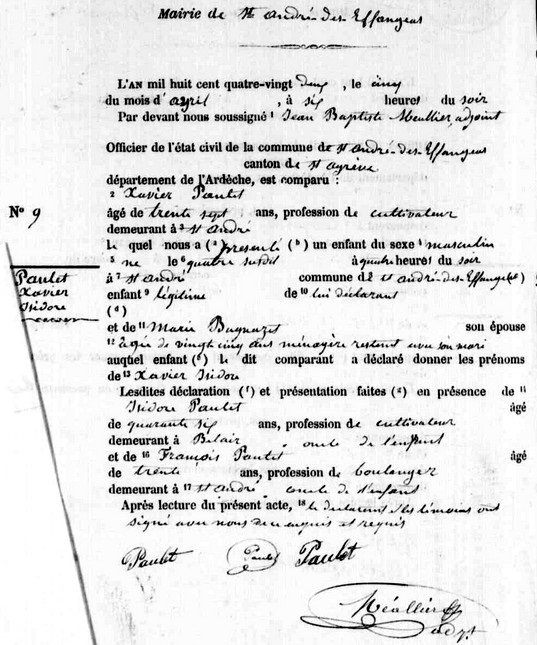 Mairie de St André-des-Effangeas
L'AN mil huit cent quatre-vingt deux, le cinq
du mois d'avril, à six heures du soir
Par devant nous soussigné ¹ Jean Baptiste Méallier, adjoint
Officier de l'état civil de la commune de St André-des-Effangeas
canton de St Agrève
département de l'Ardèche, est comparu :
² Xavier Paulet
âgé de trente sept ans, profession de cultivateur
demeurant à ³ St André
No 9
le quel nous a (ª) présenté (ᵇ) un enfant du sexe ⁴ masculin
⁵ né le ⁶ quatre susdit à quatre heures du soir
à ⁷ St André commune de St André-des-Effangeas (ᶜ)
Paulet
Xavier
Isidore
enfant ⁹ légitime de ¹⁰ lui déclarant
(ᵈ)
et de ¹¹ Marie son épouse
¹² âgée de vingt cinq ans ménagère restant avec son mari
auquel enfant (ᵉ) le dit comparant a déclaré donner les prénoms
de ¹³ Xavier Isidore
Lesdites déclaration (ᶠ) et présentation faites (ᵍ) en présence de ¹⁵
Isidore Paulet âgé
de quarante six ans, profession de cultivateur
demeurant à Bélair, oncle de l'enfant
et de ¹⁶ François Paulet âgé
de trente ans, profession de boulanger
demeurant à ¹⁷ St André oncle de l'enfant
Après lecture du présent acte, ¹⁸ le déclarant et les témoins ont
signé avec nous de ce enquis et requis
Paulet Paulet Paulet
Méallier
adjt